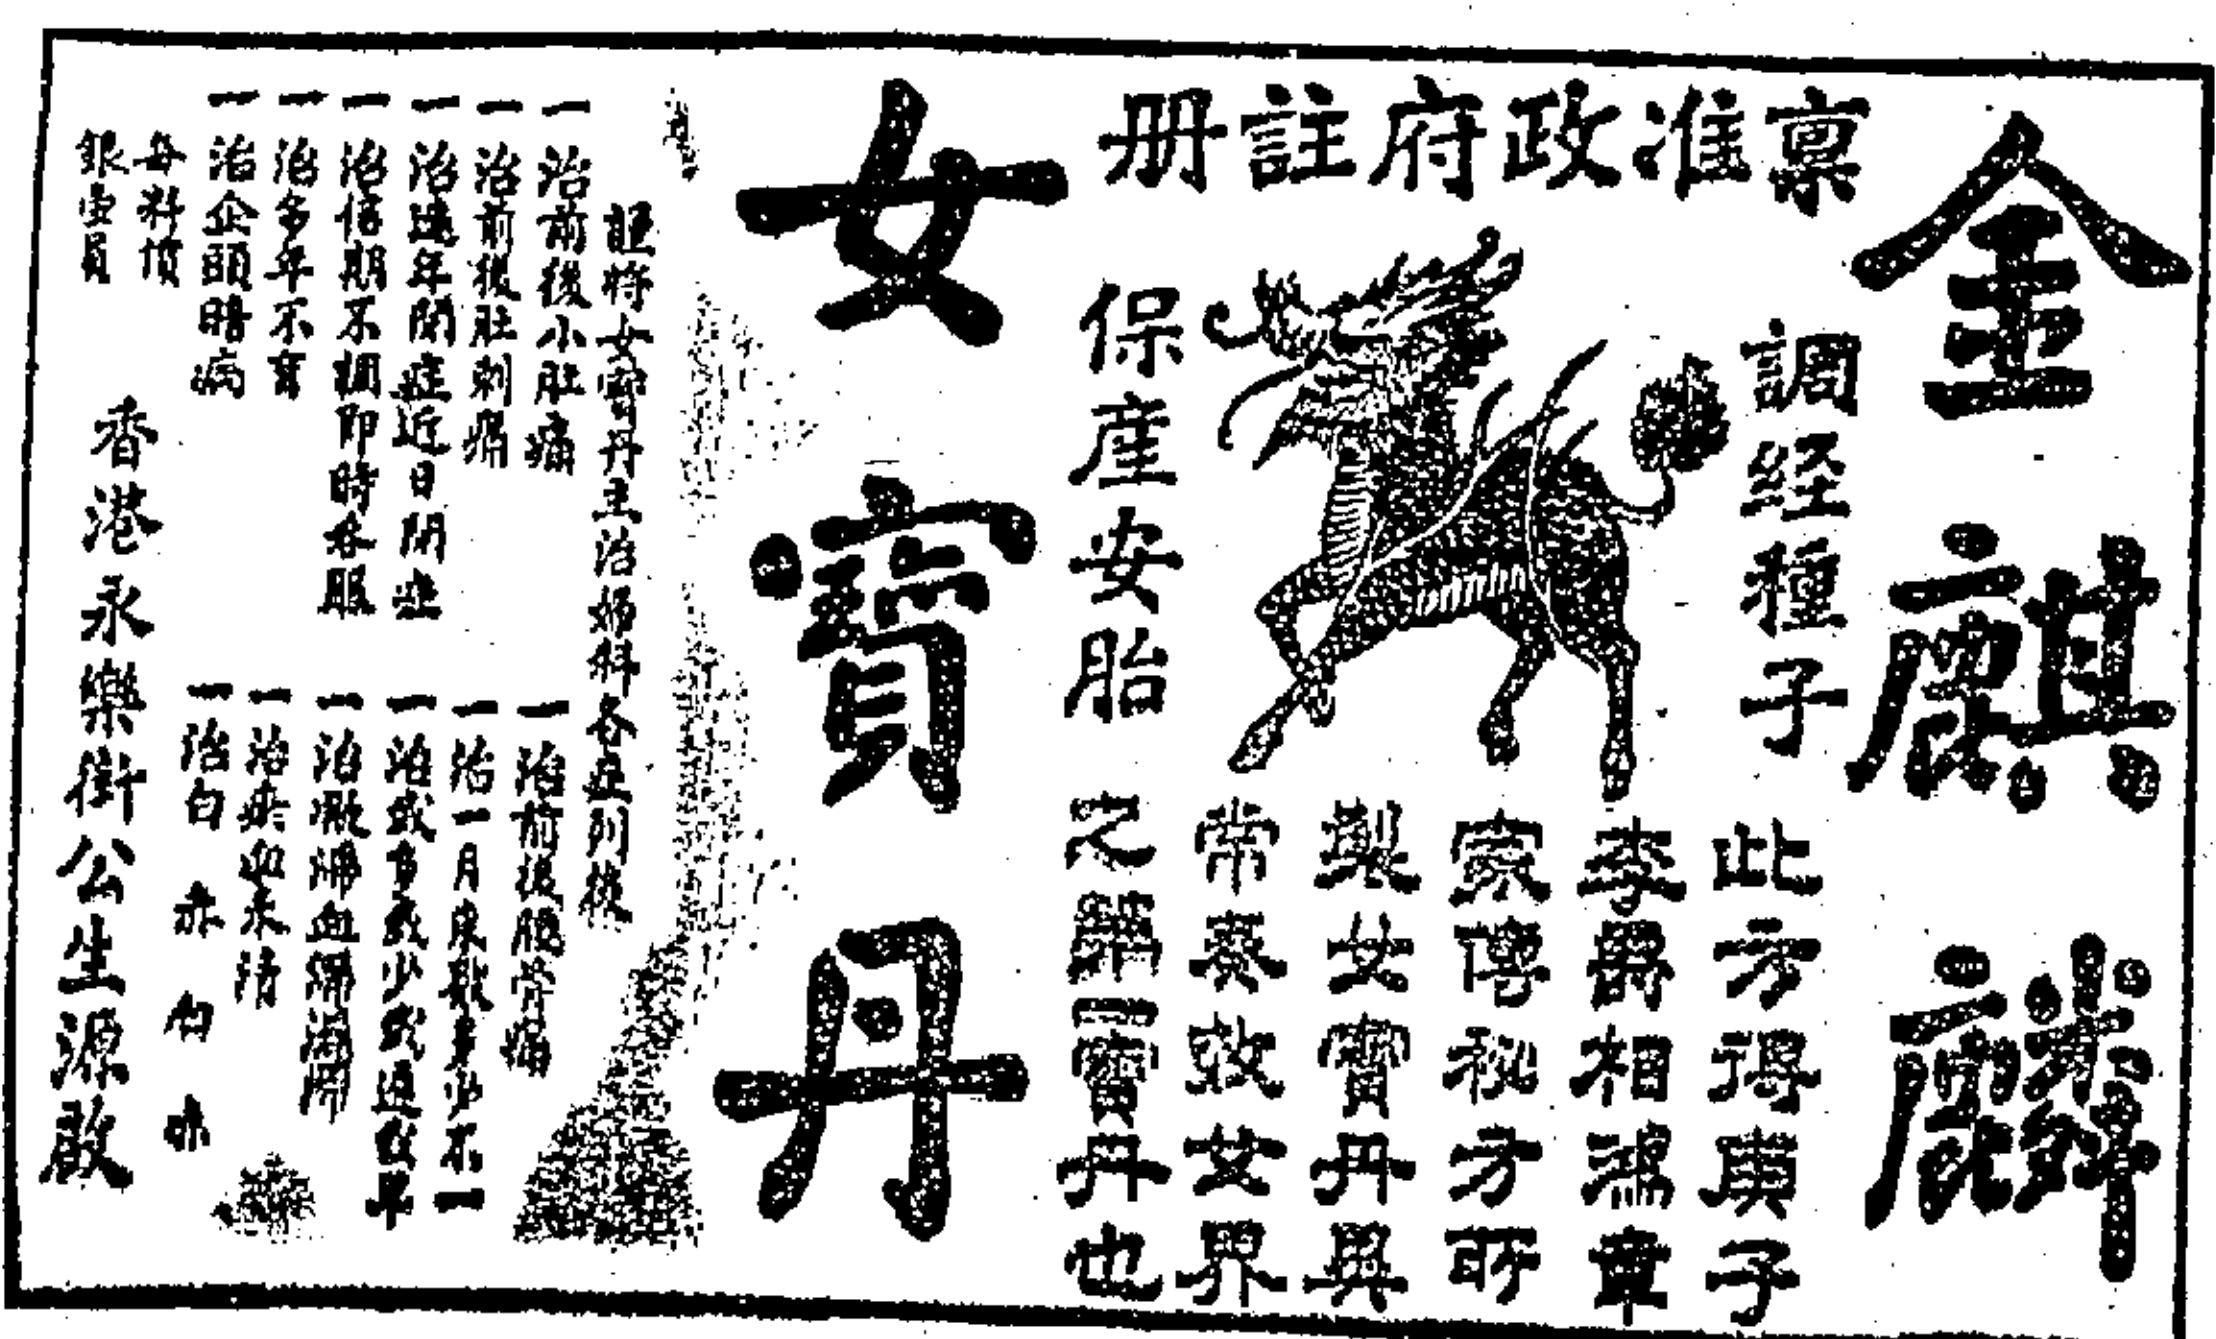 金麒麟
稟准政府註册
調経種子
保産安胎
此方得庚子
李爵相鴻章
家傳秘方所
製女寶丹與
常奏效女界
之寶丹也
女寶丹
謹将女寶丹主治婦科各症列後
一治前後小肚痛
一治前後肚刺痛
一治遠年閉症近日閉症
一治信期不調即時各服
一治多年不育
一治企頭暗病
一治前後腰骨痛
一治一月來數多少不一
一治或多或少或遲或早
一治血
一治失血未清
一治白 赤 白 赤
每料價
銀壹員
香港永樂街公生源啟